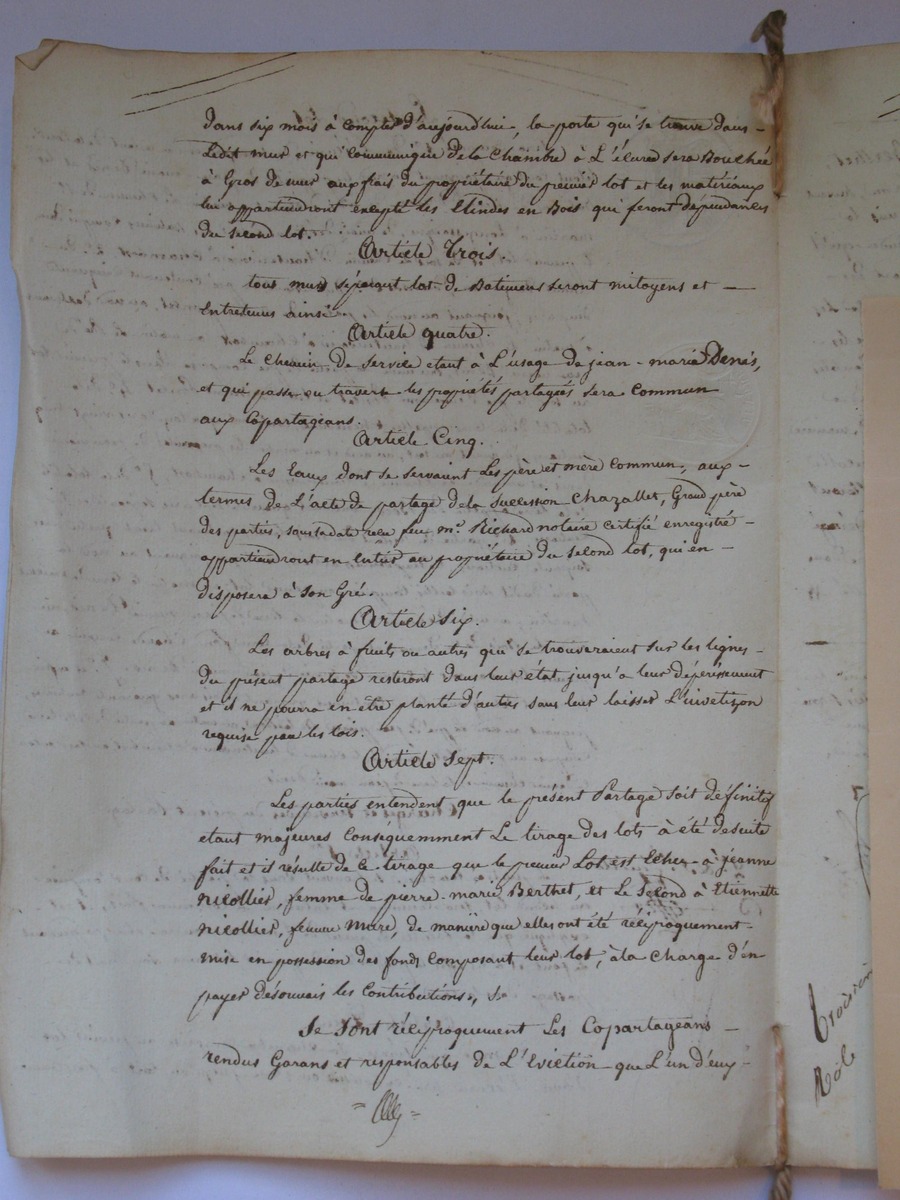 dans six mois à compter d'aujourd'hui la porte qui se trouve dans
Ledit mur et qui communique de la Chambre à L'écurie sera Bouchée
à Gros de mur aux frais du propriétaire du premier lot et les matériaux
lui appartiendront excepté les en Bois qui seront dépendances
du second lot.
Article Trois.
tous murs séparant lot de Batimens seront mitoyens et
Entretenus ainsi.
Article quatre.
Le Chemin de service etant à L'usage de jean-marie Denis,
et qui passe en traverse les propriétés partagées sera Commun
aux Copartageans.
Article Cinq.
Les Eaux dont se servaient Les père et mère Commun, aux
termes de L'acte de partage de la succession Chazallet, Grand père
des parties, sous sa date recu feu me. Richard notaire certifié enregistré
appartiendront en Entier au propriétaire du second lot, qui en
disposera à son Gré.
Article six.
Les arbres à fruits ou autres qui se trouveraient sur les lignes
du présent partage resteront dans leur état jusqu'a leur dépérissement
et il ne pourra en être planté d'autres sans leur laisser
requise par les lois.
Article sept.
Les parties entendent que le présent Partage soit définitif
etant majeures Conséquemment Le tirage des lots à été desuite
fait et il résulte de ce tirage que le premier Lot est Echu à jeanne
Nicollier, femme de pierre-marie Berthet, et Le second à Etiennette
Nicollier, femme More, de manière que elles ont été réciproquement
mise en possession des fonds composant leur lot, à la Charge d'en
payer désormais les Contributions,
Se sont réciproquement Les Copartageans
rendus Garans et responsables de L'Eviction que L'un d'eux
troisième
Rôle